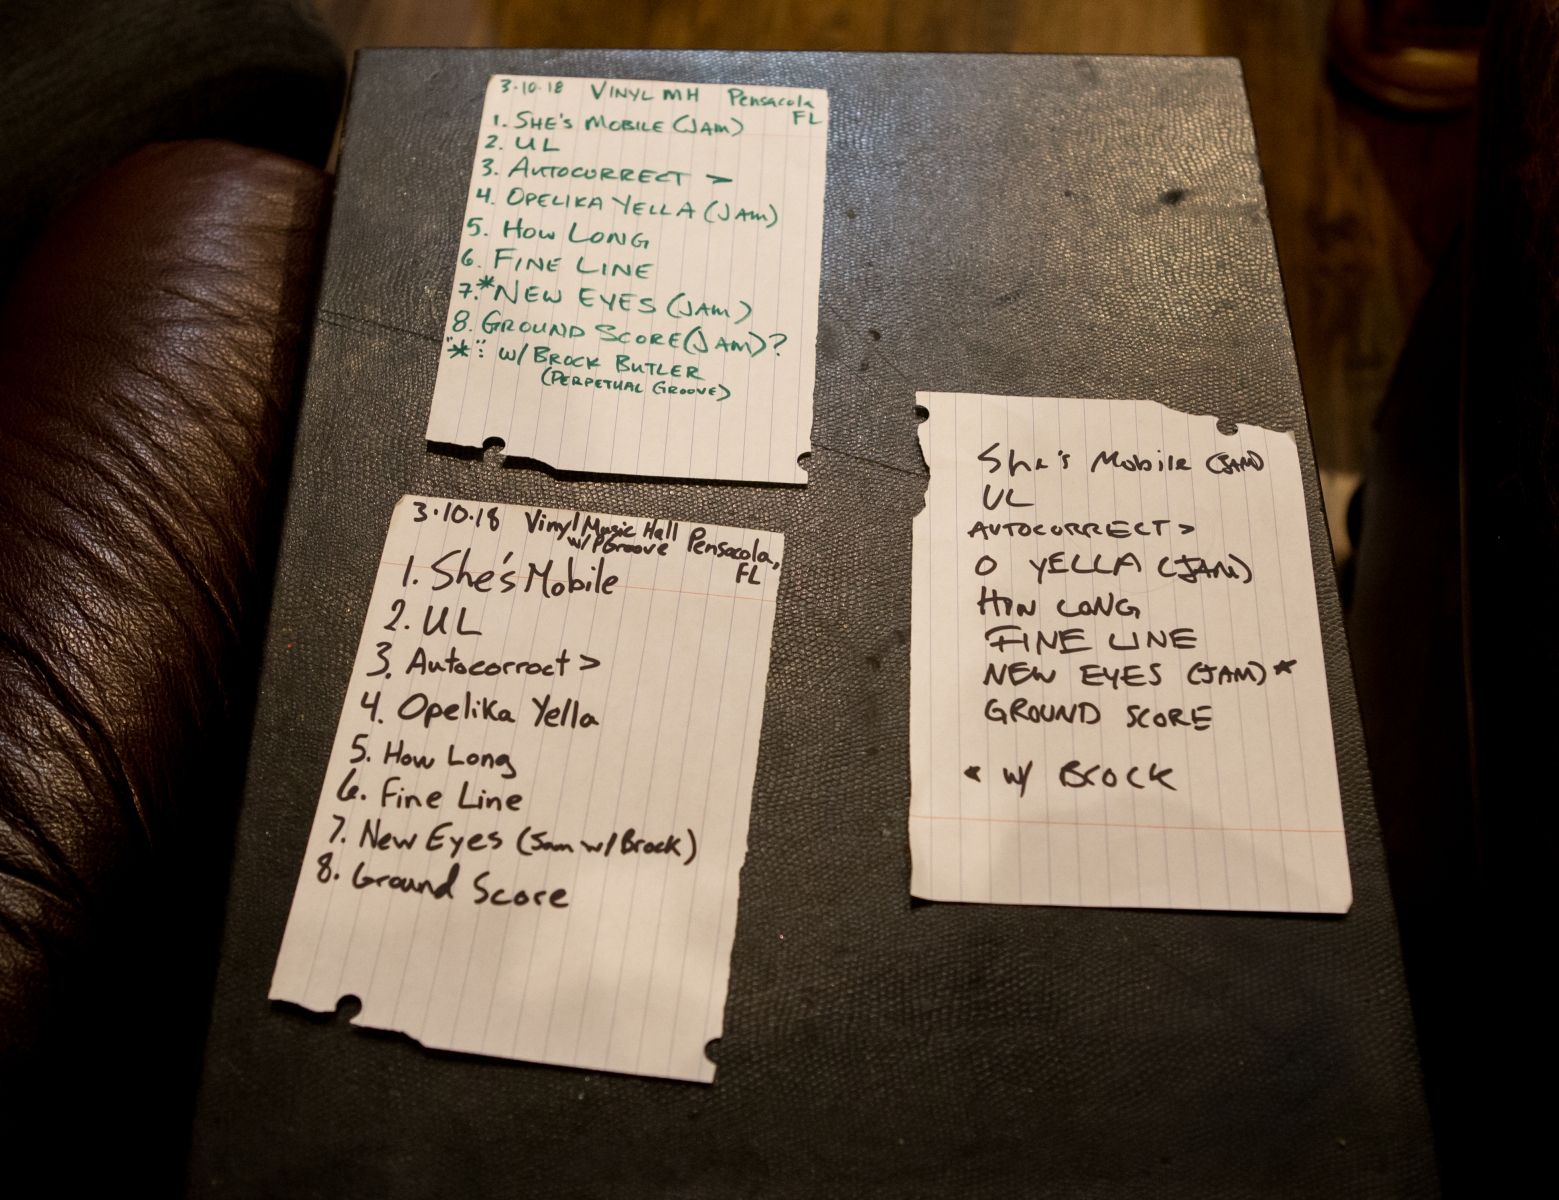 3·10·18 VINYL MH Pensacola
FL
1. SHE'S MOBILE (JAM)
2. UL
3. AUTOCORRECT >
4. OPELIKA YELLA (JAM)
5. HOW LONG
6. FINE LINE
7.*NEW EYES (JAM)
8. GROUND SCORE (JAM)?
"*": w/ BROCK BUTLER
(PERPETUAL GROOVE)
3·10·18 Vinyl Music Hall Pensacola,
w/PGroove FL
1. She's Mobile
2. UL
3. Autocorrect >
4. Opelika Yella
5. How Long
6. Fine Line
7. New Eyes (Jam w/Brock)
8. Ground Score
She's Mobile (JAM)
UL
AUTOCORRECT >
O YELLA (JAM)
HOW LONG
FINE LINE
NEW EYES (JAM)*
GROUND SCORE
* w/ BROCK